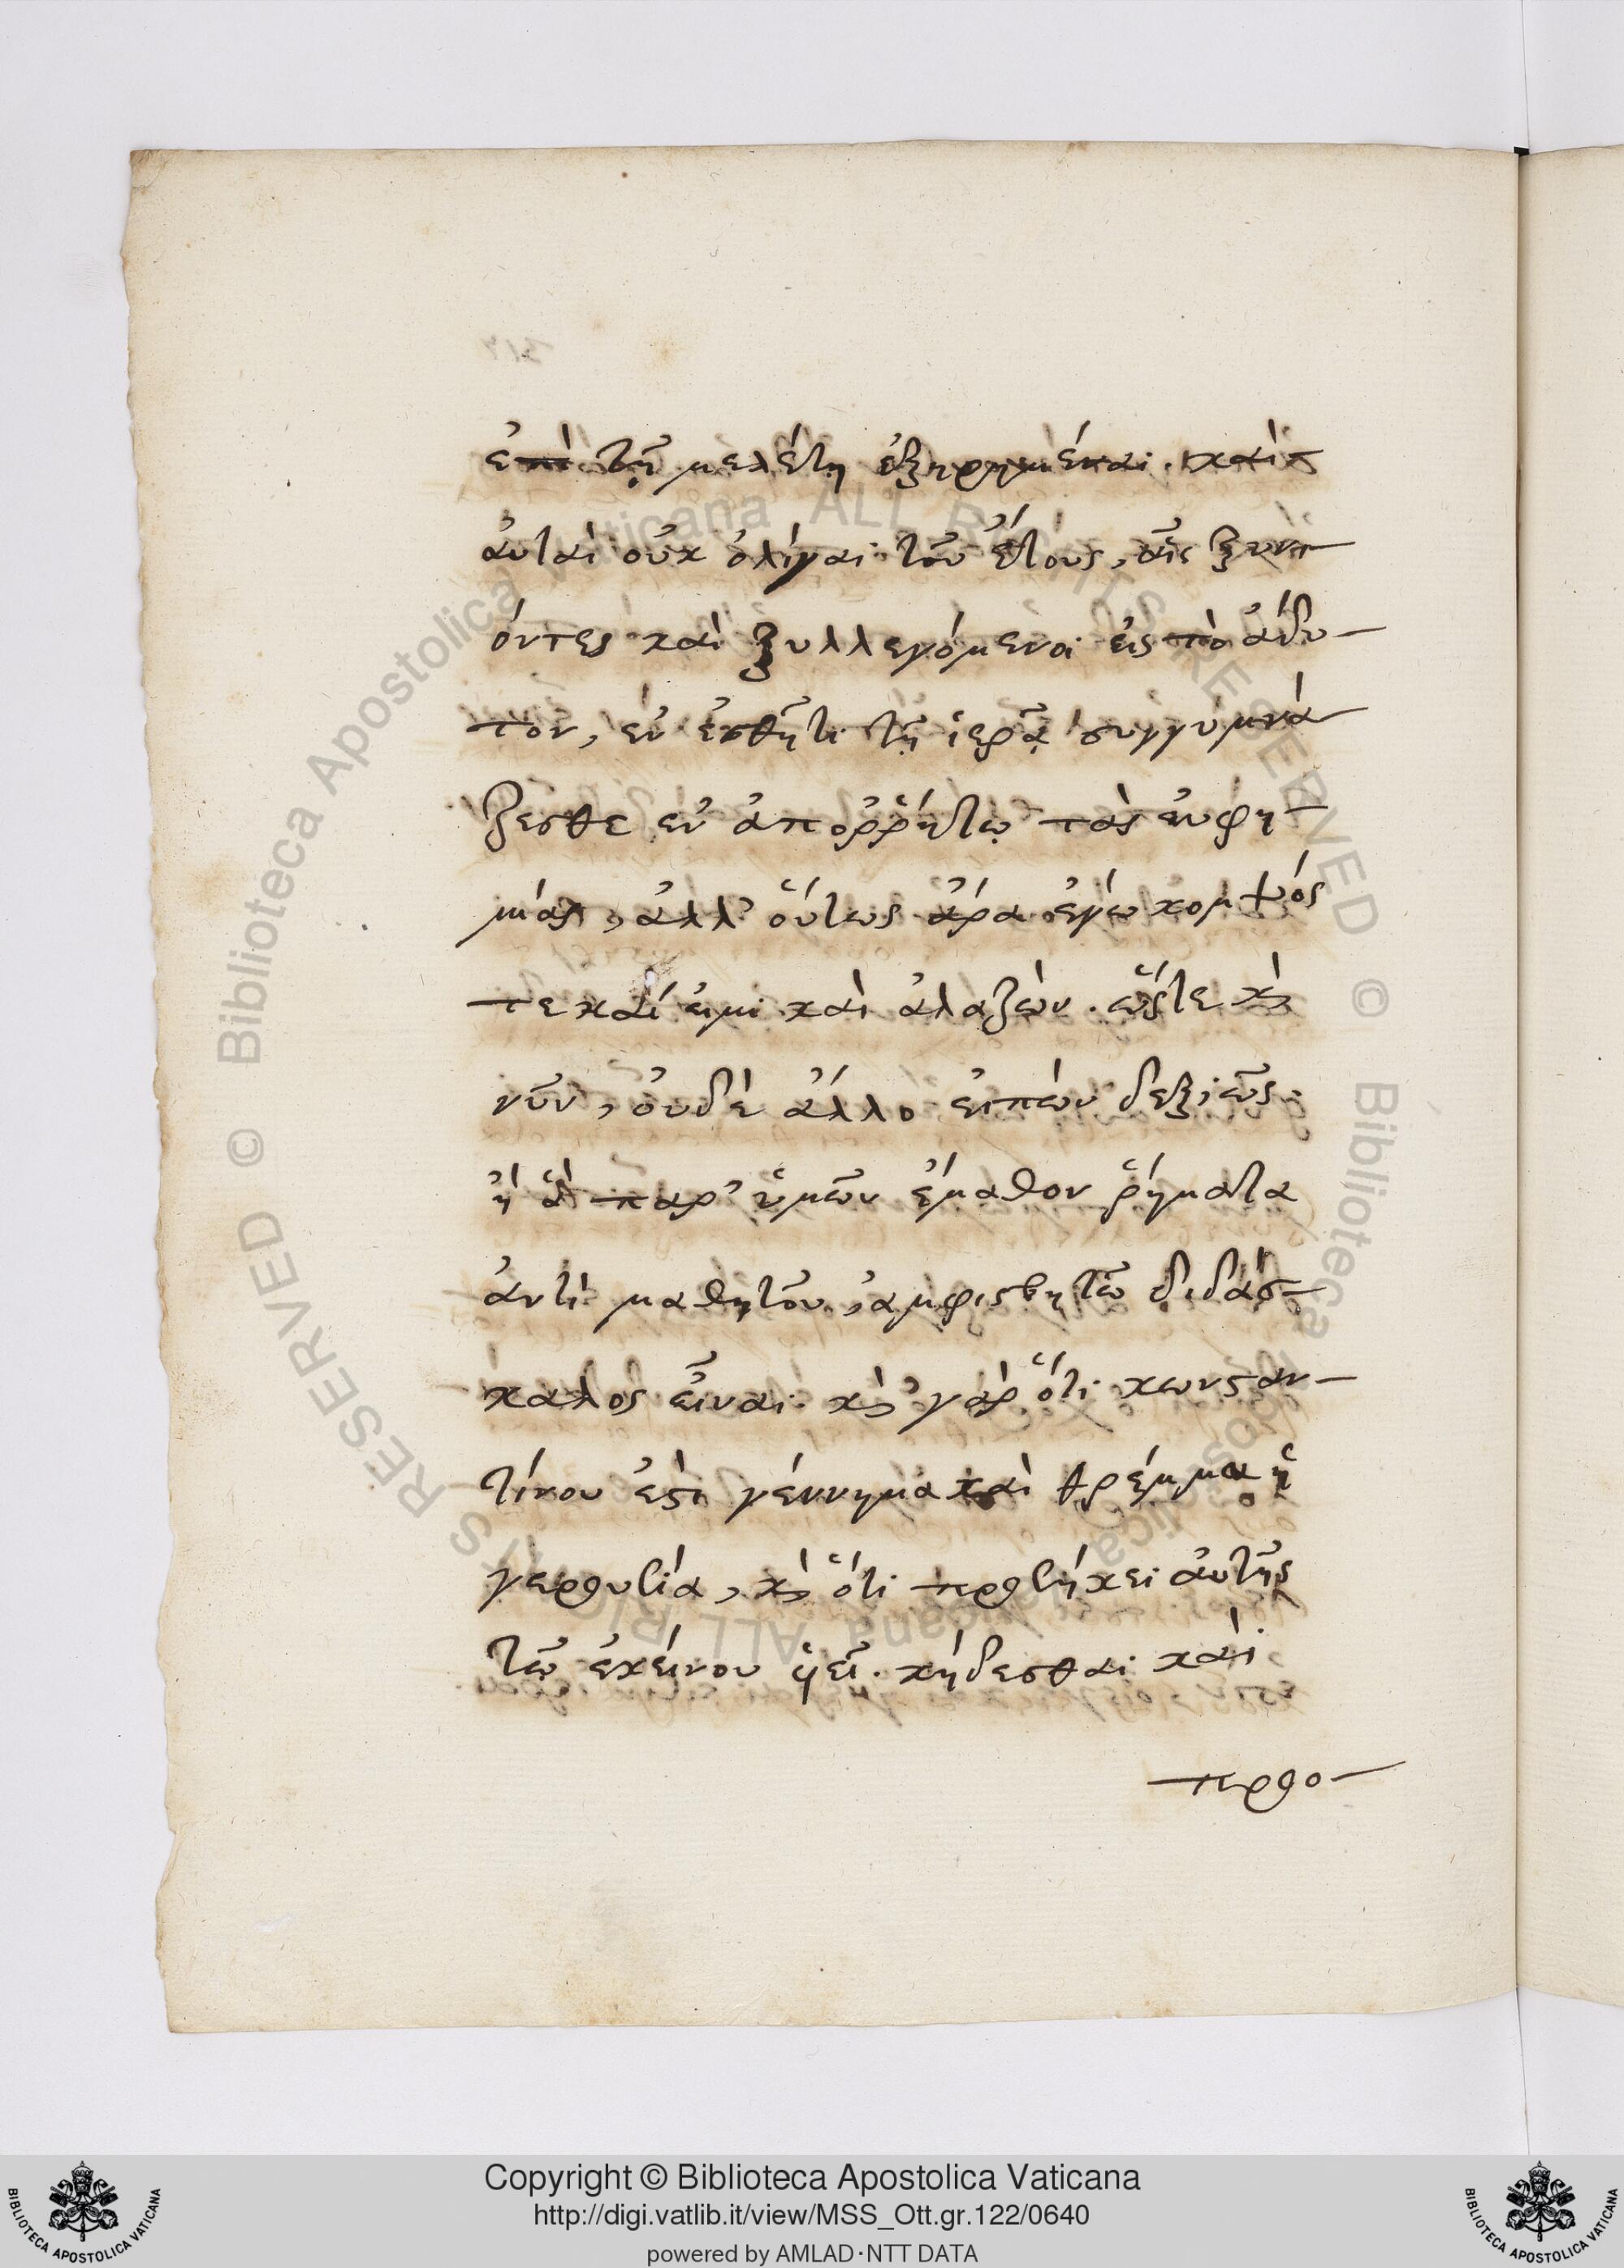 ἐπὶ τῇ μελέτῃ ἐξηρημέναι. καὶ
αὐταὶ οὐκ ὀλίγαι τοῦ ἔτους, αἷς ξυνι-
όντες καὶ ξυλλεγόμενοι εἰς τὸ ἄδυ-
τον, ἐν ἐσθῆτι τῇ ἱερᾷ συγγυμνά
ζεσθε ἐν ἀποῤῥήτῳ τὰς εὐφη-
μίας, ἀλλ' οὕτως ἄρα ἐγὼ κομψός
τε καί εἰμι καὶ ἀλαζών. ὥστε κὶ
νῦν, οὐδὲ ἄλλο εἰπὼν δεξιῶς
ἢ ἃ παρ' ὑμῶν ἔμαθον ῥήματα
ἀντὶ μαθητοῦ, ἀμφισβητῶ διδάσ-
καλος εἶναι. κὶ γὰρ ὅτι κωνσταν-
τίνου ἐστὶ γέννημα καὶ θρέμμα ἡ
γερουσία, κὶ ὅτι προσήκει αὐτῆς
τῷ ἐκείνου γένει κήδεσθαι καὶ
προ-
Copyright © Biblioteca Apostolica Vaticana
http://digi.vatlib.it/view/MSS_Ott.gr.122/0640
powered by AMLAD·NTT DATA
BIBLIOTECA APOSTOLICA VATICANA
BIBLIOTECA APOSTOLICA VATICANA
© Biblioteca Apostolica Vaticana ALL RIGHTS RESERVED © Biblioteca Apostolica Vaticana ALL RIGHTS RESERVED